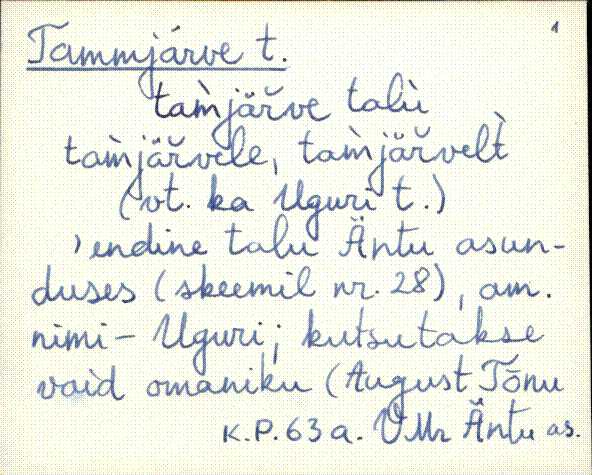 1
Tammjärve t.
tam̀jäŕve talù
tam̀jäŕvele, tam̀jäŕvelt̀
(vt. ka Uguri t.)
, endine talu Äntu asun-
duses (skeemil nr. 28), am.
nimi – Uguri; kutsutakse
vaid omaniku (August Tõnu
K.P. 63 a. VMr Äntu as.